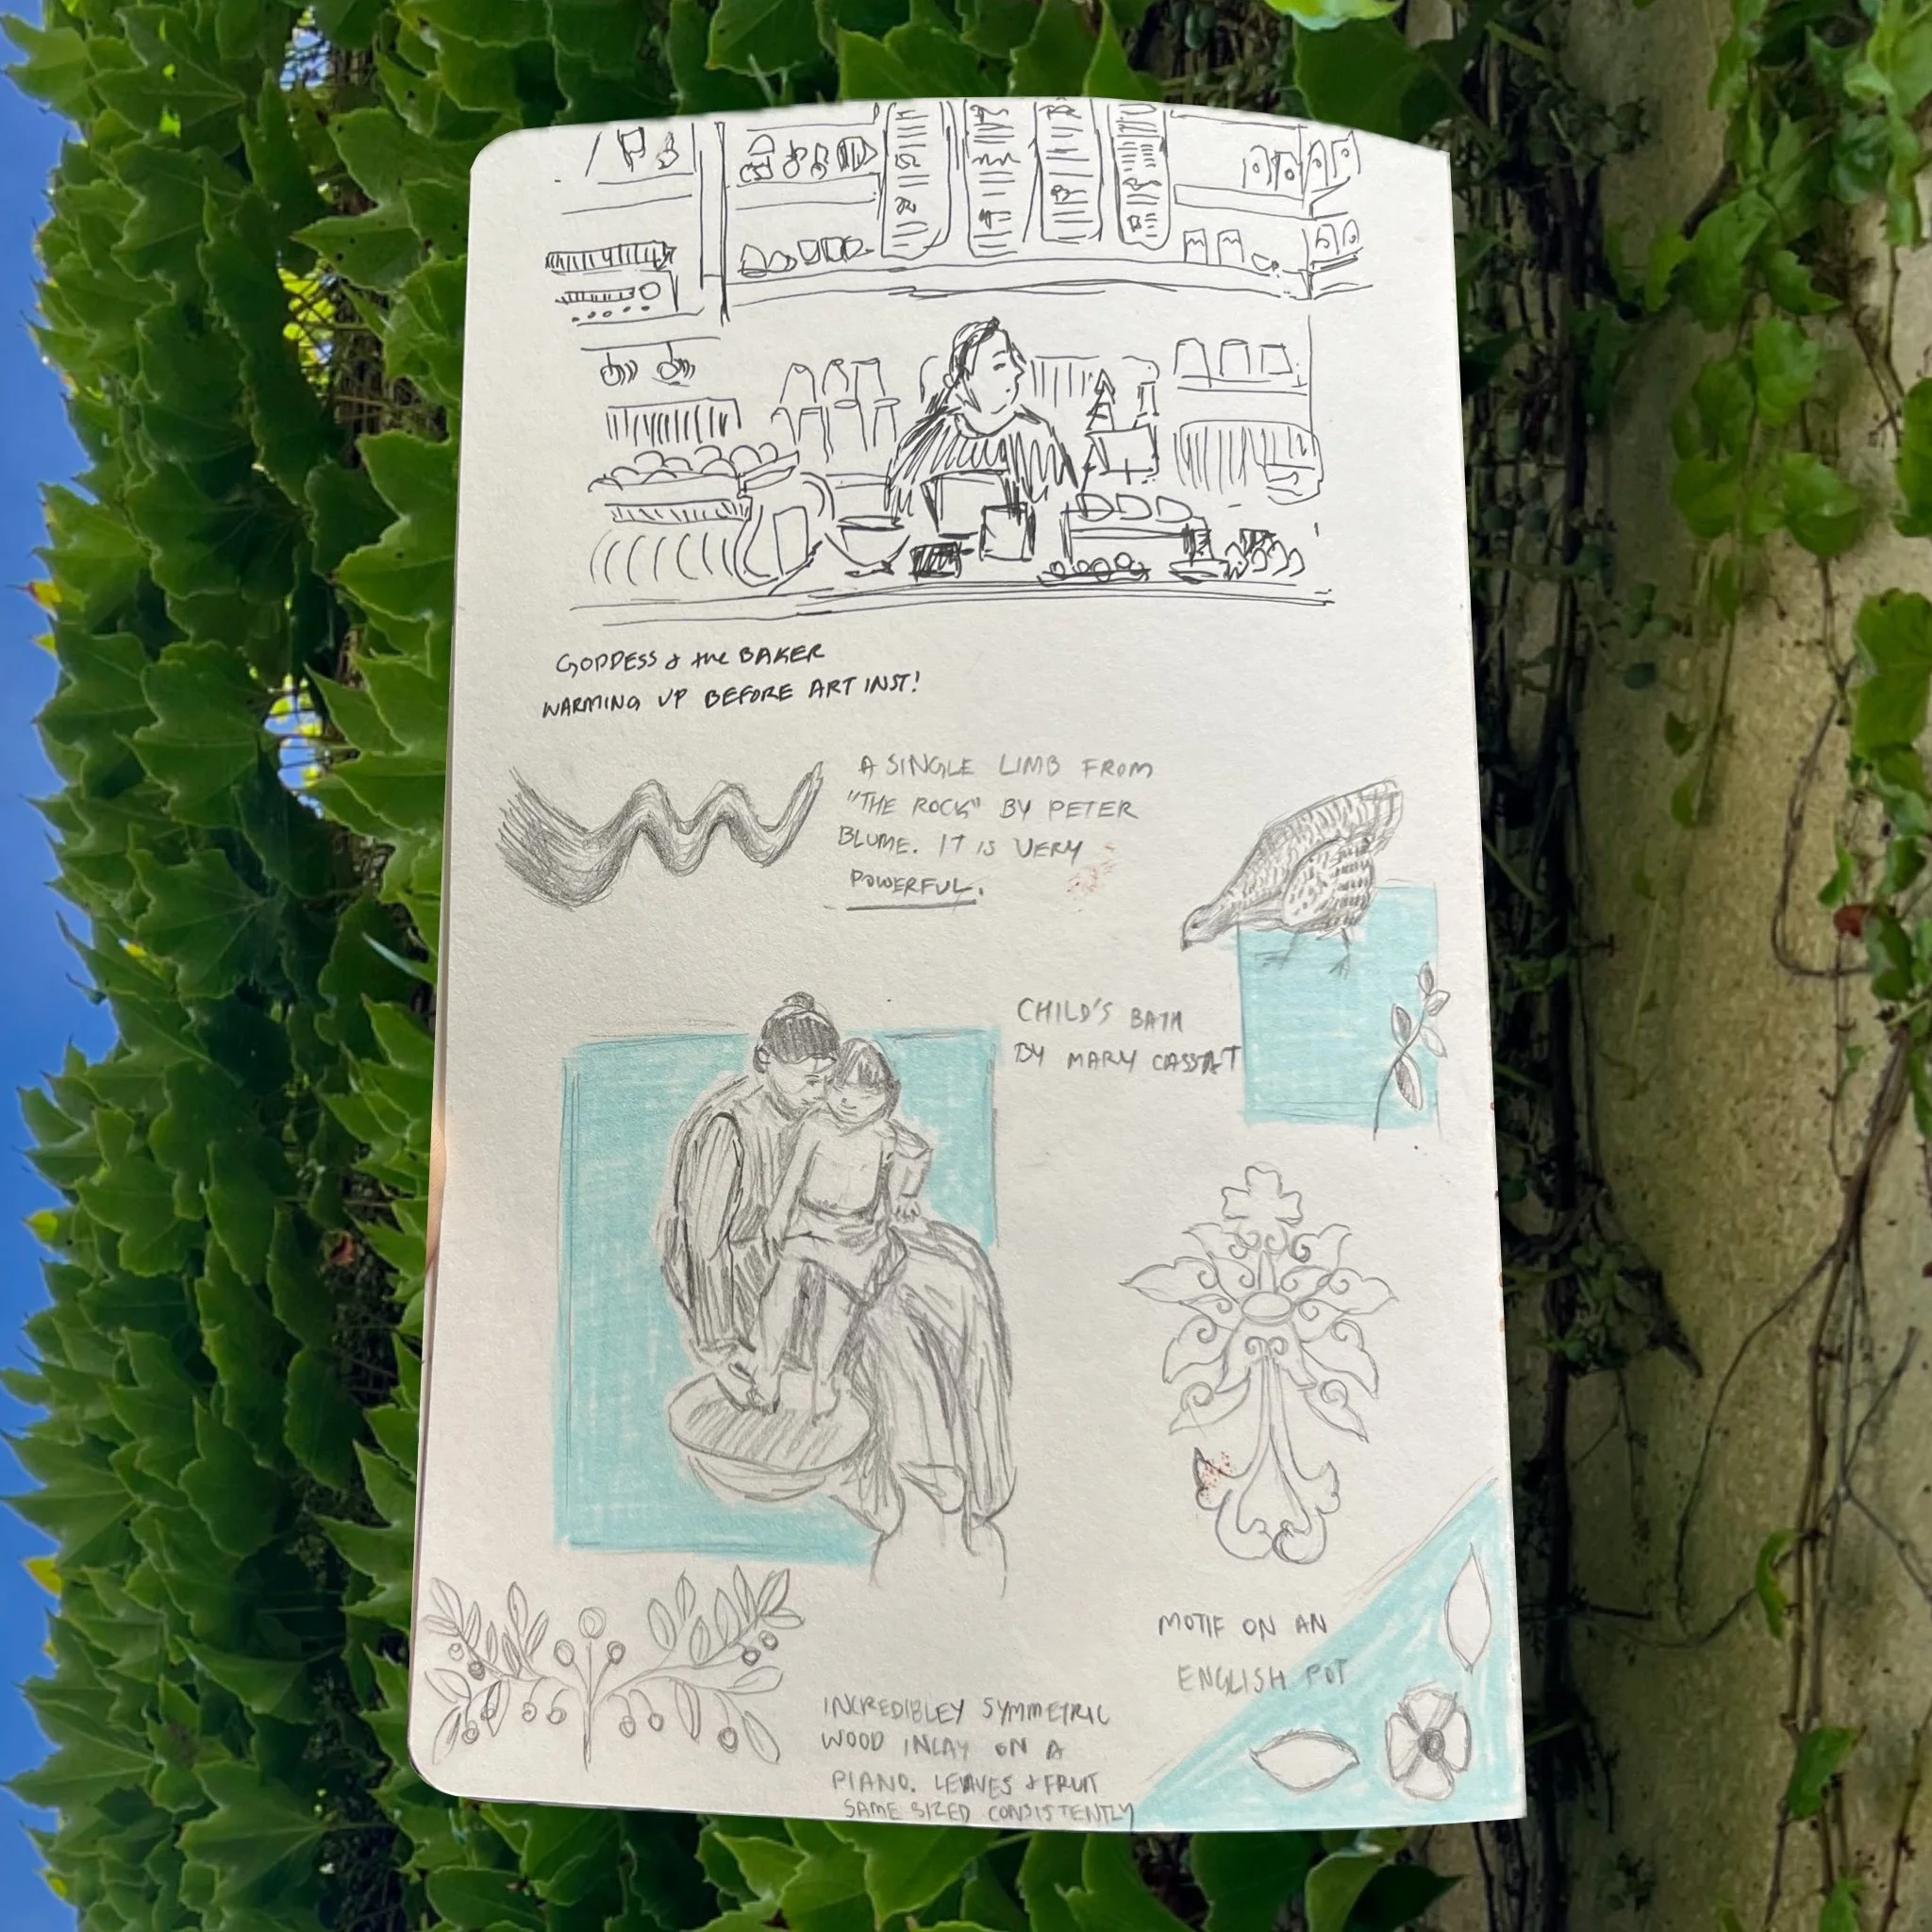 GODDESS & the BAKER
WARMING UP BEFORE ART INST!
A SINGLE LIMB FROM
"THE ROCK" BY PETER
BLUME. IT IS VERY
POWERFUL.
CHILD'S BATH
BY MARY CASSAT
MOTIF ON AN
ENGLISH POT
INCREDIBLEY SYMMETRIC
WOOD INLAY ON A
PIANO. LEAVES & FRUIT
SAME SIZED CONSISTENTLY